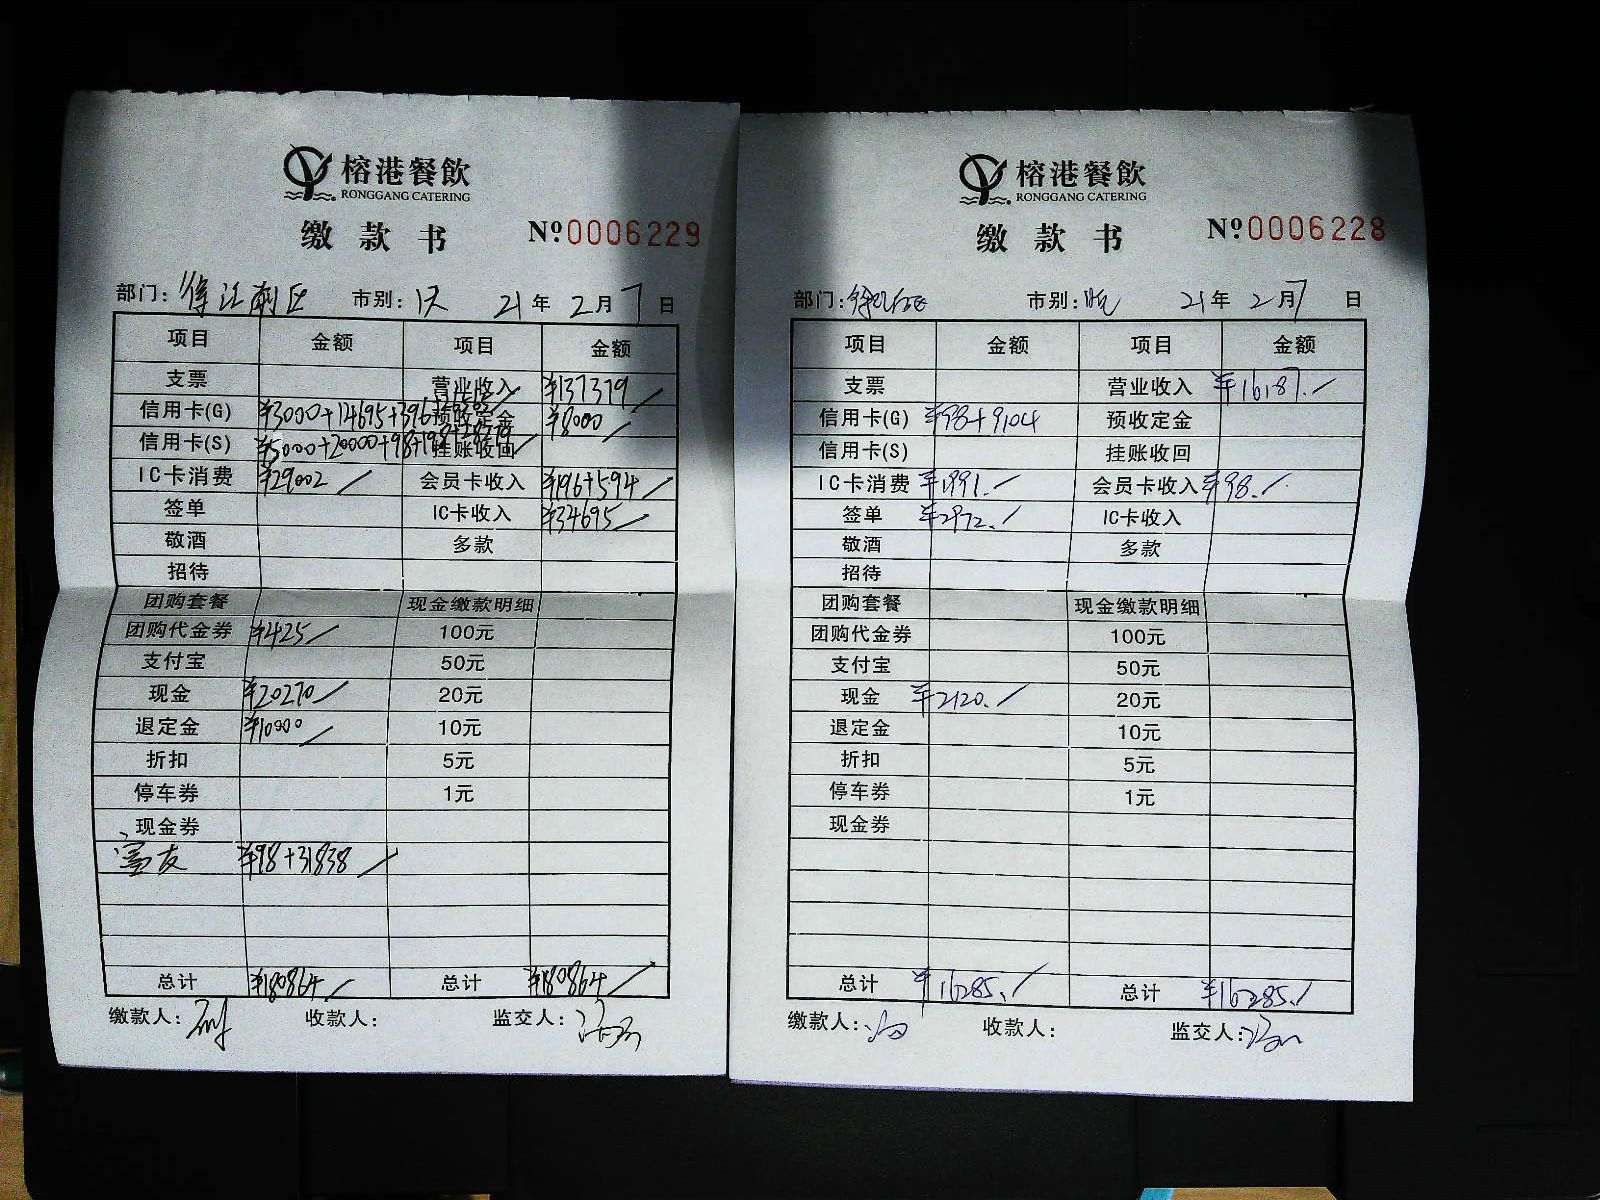 榕港餐飲
RONGGANG CATERING
缴款书 №0006229
部门: 徐汇南区 市别: 21年2月7日
项目 金额 项目 金额
支票 营业收入 ¥137379
信用卡(G) ¥3000+14695+396 预收定金 ¥8000
信用卡(S) ¥5000+20000+98+198+ 挂账收回
IC卡消费 ¥29002 会员卡收入 ¥196+594
签单 IC卡收入 ¥34695
敬酒 多款
招待
团购套餐 现金缴款明细
团购代金券 ¥425 100元
支付宝 50元
现金 ¥20270 20元
退定金 ¥10000 10元
折扣 5元
停车券 1元
现金券
富友 ¥98+31838
总计 ¥180864 总计 ¥180864
缴款人: 收款人: 监交人:
榕港餐飲
RONGGANG CATERING
缴款书 №0006228
部门: 市别: 晚 21年2月7日
项目 金额 项目 金额
支票 营业收入 ¥16187.
信用卡(G) ¥98+9104 预收定金
信用卡(S) 挂账收回
IC卡消费 ¥1991. 会员卡收入 ¥98.
签单 ¥2972. IC卡收入
敬酒 多款
招待
团购套餐 现金缴款明细
团购代金券 100元
支付宝 50元
现金 ¥2120. 20元
退定金 10元
折扣 5元
停车券 1元
现金券
总计 ¥16285. 总计 ¥16285.
缴款人: 收款人: 监交人: